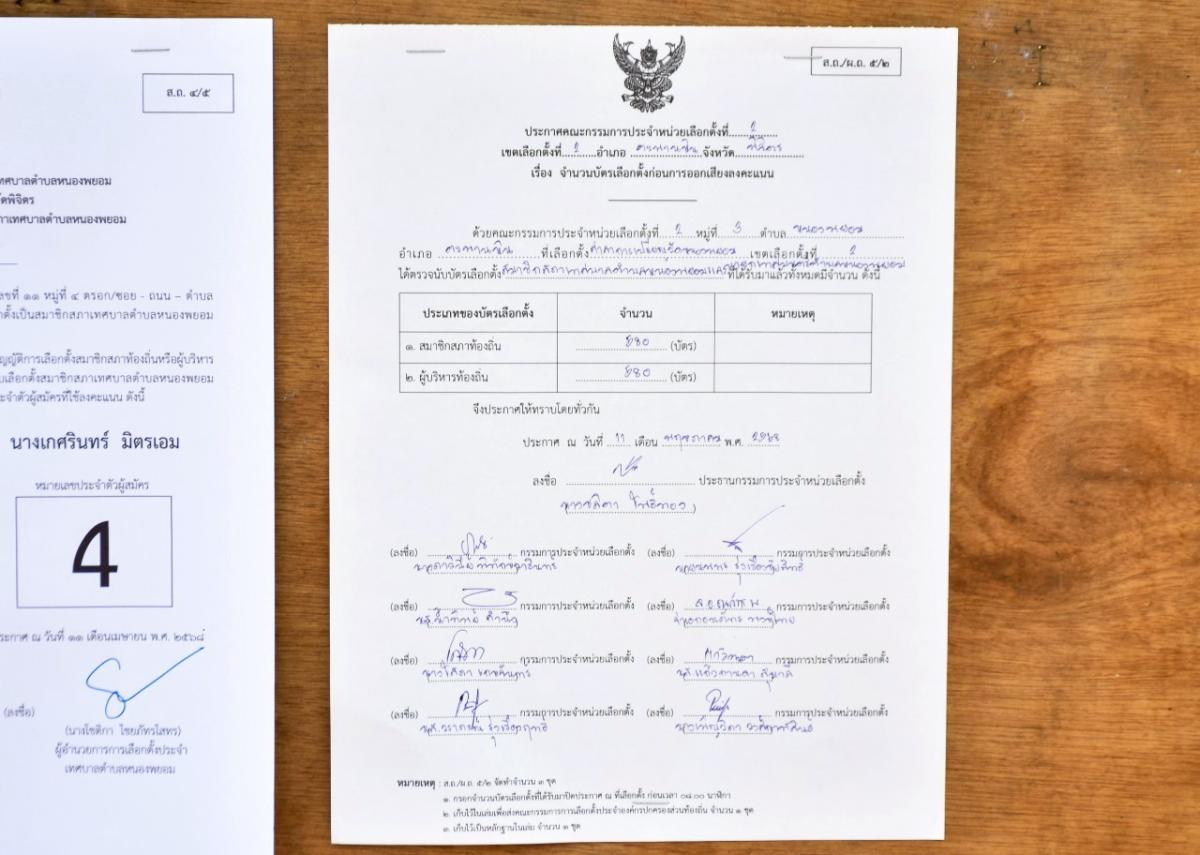 ส.ถ. ๔/๕
ทศบาลตำบลหนองพยอม
ัดพิจิตร
ภาเทศบาลตำบลหนองพยอม
ลขที่ ๑๑ หมู่ที่ ๔ ตรอก/ซอย - ถนน – ตำบล
กตั้งเป็นสมาชิกสภาเทศบาลตำบลหนองพยอม
ญญัติการเลือกตั้งสมาชิกสภาท้องถิ่นหรือผู้บริหาร
บเลือกตั้งสมาชิกสภาเทศบาลตำบลหนองพยอม
ะจำตัวผู้สมัครที่ใช้ลงคะแนน ดังนี้
นางเกศรินทร์ มิตรเอม
หมายเลขประจำตัวผู้สมัคร
4
ระกาศ ณ วันที่ ๑๑ เดือนเมษายน พ.ศ. ๒๕๖๘
(ลงชื่อ)
(นางโชติกา ไชยภัทรโสทร)
ผู้อำนวยการการเลือกตั้งประจำ
เทศบาลตำบลหนองพยอม
ส.ถ./ผ.ถ. ๕/๒
ประกาศคณะกรรมการประจำหน่วยเลือกตั้งที่ 2
เขตเลือกตั้งที่ 2 อำเภอ ตะพานหิน จังหวัด พิจิตร
เรื่อง จำนวนบัตรเลือกตั้งก่อนการออกเสียงลงคะแนน
ด้วยคณะกรรมการประจำหน่วยเลือกตั้งที่ 2 หมู่ที่ 3 ตำบล หนองพยอม
อำเภอ ตะพานหิน ที่เลือกตั้ง เขตเลือกตั้งที่ 2
ได้ตรวจนับบัตรเลือกตั้ง สมาชิกสภาเทศบาลตำบลหนองพยอมและนายกเทศมนตรีตำบลหนองพยอม ที่ได้รับมาแล้วทั้งหมดมีจำนวน ดังนี้
ประเภทของบัตรเลือกตั้ง จำนวน หมายเหตุ
๑. สมาชิกสภาท้องถิ่น 880 (บัตร)
๒. ผู้บริหารท้องถิ่น 880 (บัตร)
จึงประกาศให้ทราบโดยทั่วกัน
ประกาศ ณ วันที่ 11 เดือน พฤษภาคม พ.ศ. 2568
ลงชื่อ ประธานกรรมการประจำหน่วยเลือกตั้ง
(ลงชื่อ) กรรมการประจำหน่วยเลือกตั้ง (ลงชื่อ) กรรมการประจำหน่วยเลือกตั้ง
(ลงชื่อ) กรรมการประจำหน่วยเลือกตั้ง (ลงชื่อ) กรรมการประจำหน่วยเลือกตั้ง
(ลงชื่อ) กรรมการประจำหน่วยเลือกตั้ง (ลงชื่อ) กรรมการประจำหน่วยเลือกตั้ง
(ลงชื่อ) กรรมการประจำหน่วยเลือกตั้ง (ลงชื่อ) กรรมการประจำหน่วยเลือกตั้ง
หมายเหตุ : ส.ถ./ผ.ถ. ๕/๒ จัดทำจำนวน ๓ ชุด
๑. กรอกจำนวนบัตรเลือกตั้งที่ได้รับมาปิดประกาศ ณ ที่เลือกตั้ง ก่อนเวลา ๐๘.๐๐ นาฬิกา
๒. เก็บไว้ในเล่มเพื่อส่งคณะกรรมการการเลือกตั้งประจำองค์กรปกครองส่วนท้องถิ่น จำนวน ๑ ชุด
๓. เก็บไว้เป็นหลักฐานในเล่ม จำนวน ๑ ชุด